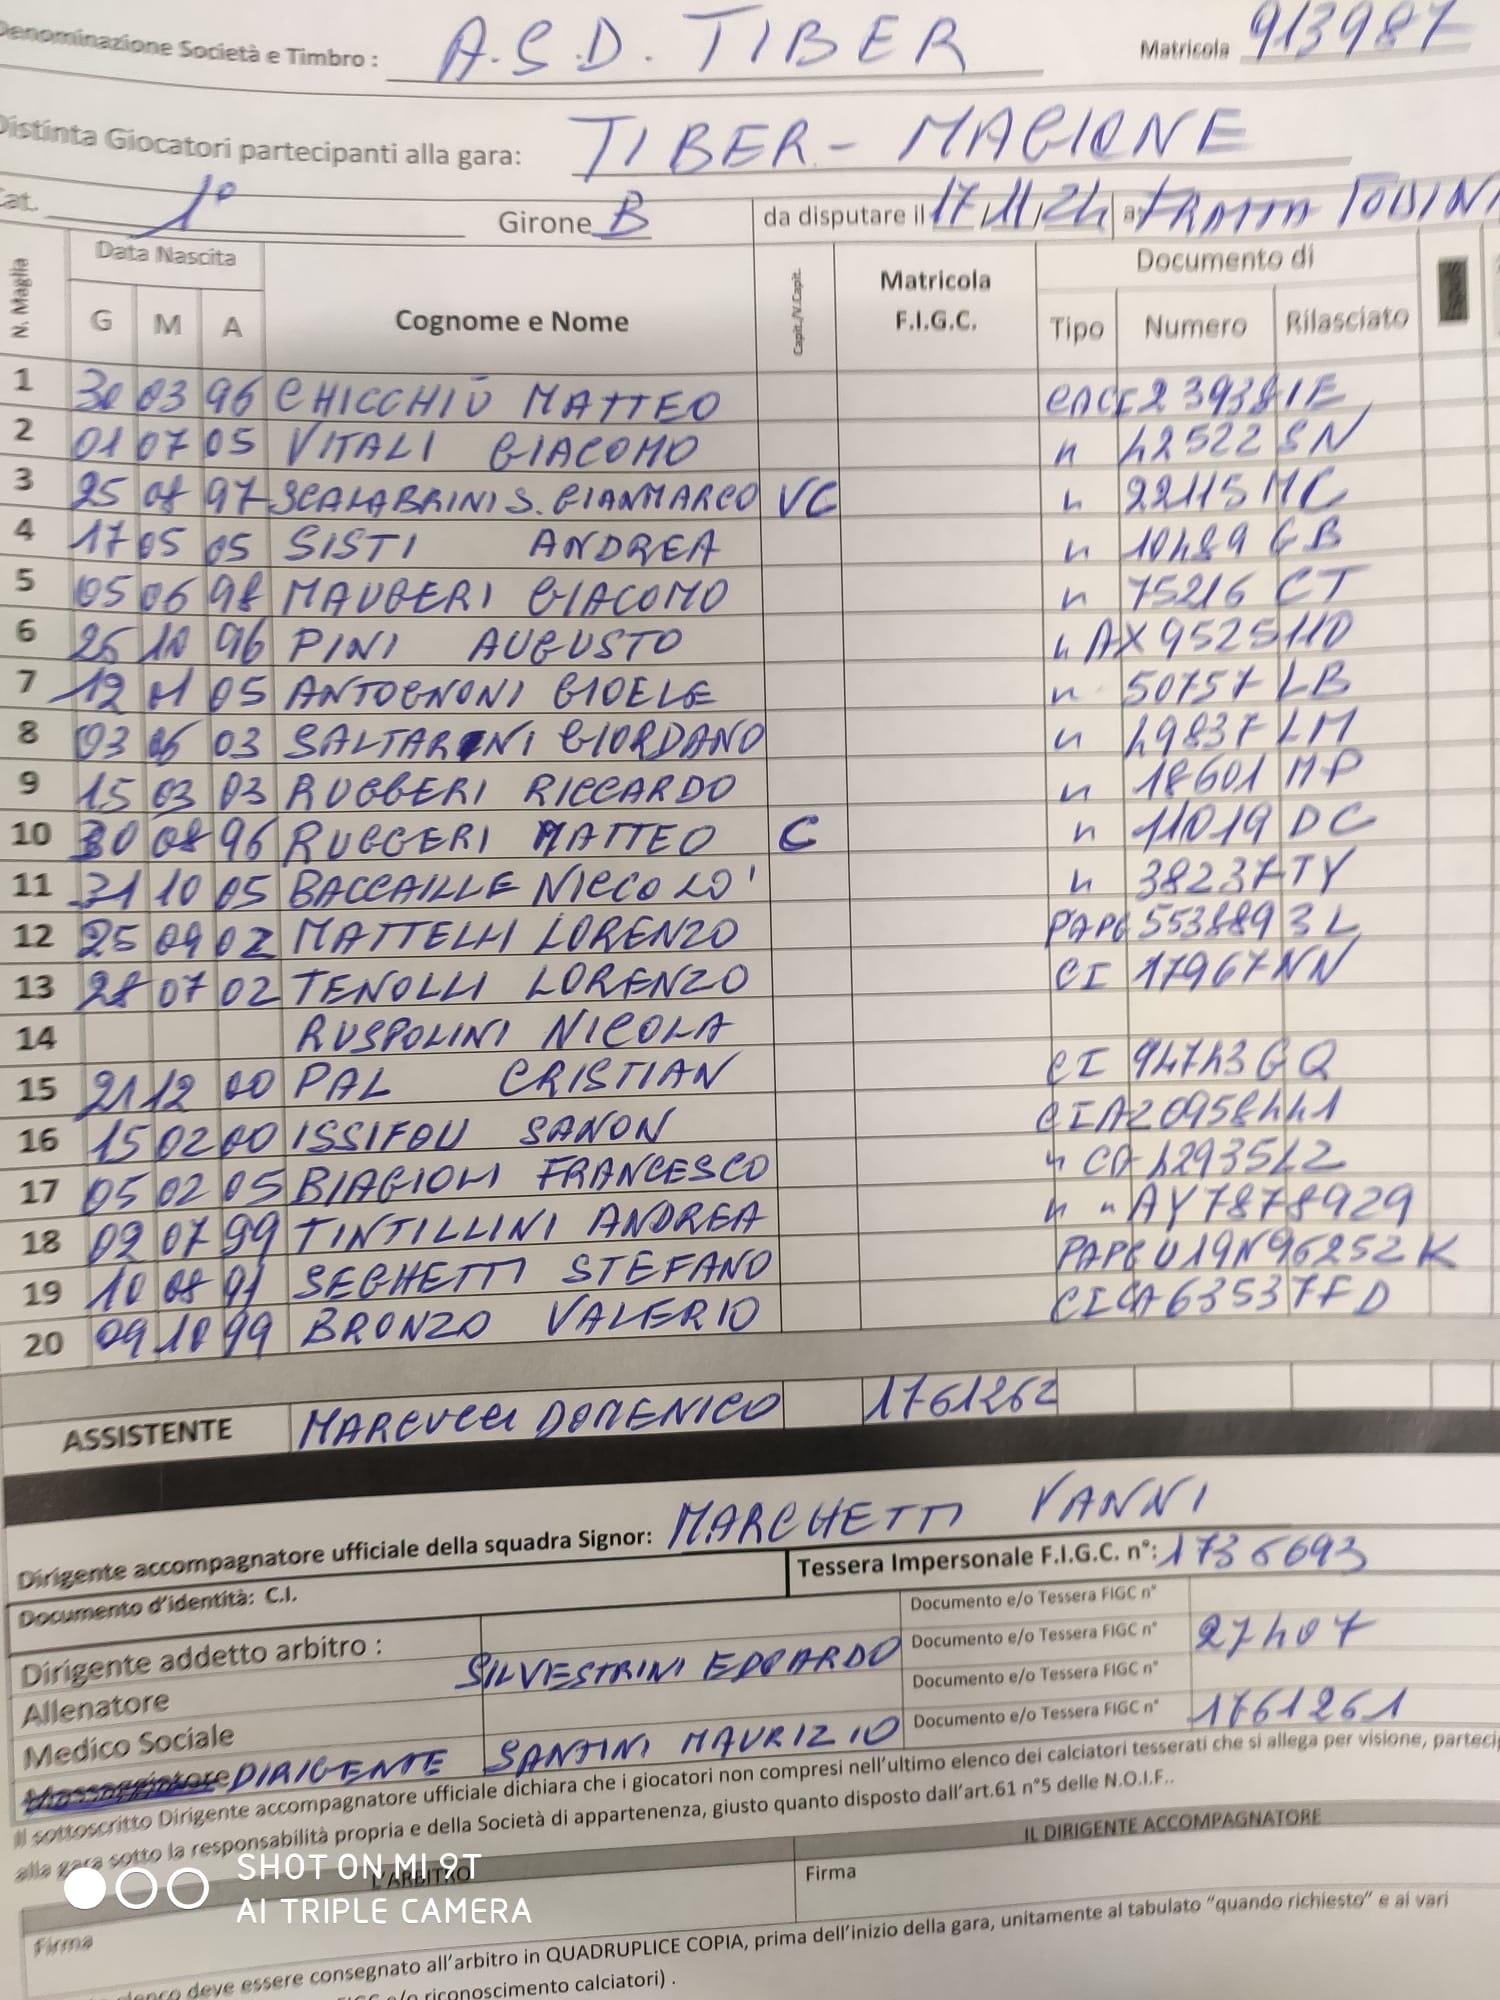 Denominazione Società e Timbro : A.S.D. TIBER Matricola 913987
Distinta Giocatori partecipanti alla gara: TIBER - MAGIONE
Cat. 1° Girone B da disputare il 17/11/24 a
N. Maglia Data Nascita G M A Cognome e Nome Capit./V.Capit. Matricola F.I.G.C. Documento di Tipo Numero Rilasciato
1 30 03 96 CHICCHIÙ MATTEO
2 01 07 05 VITALI GIACOMO " 42522 SN
3 25 08 97 SCALABRINI S. GIANMARCO VC " 22115 MC
4 17 05 05 SISTI ANDREA " 10489 GB
5 05 06 98 MAUGERI GIACOMO " 75216 CT
6 25 10 96 PINI AUGUSTO " AX 9525110
7 12 01 05 ANTOGNONI GIOELE " 50757 LB
8 03 06 03 SALTARINI GIORDANO " 49837 LM
9 15 03 03 RUGGERI RICCARDO " 18601 MP
10 30 08 96 RUGGERI MATTEO C " 11019 DC
11 31 10 05 BACCAILLE NICCOLO' " 38237 TY
12 25 09 02 MATTELLI LORENZO
13 28 07 02 TENOLLI LORENZO CI 17967 NN
14 RUSPOLINI NICOLA
15 21 12 00 PAL CRISTIAN CI 94743 GQ
16 15 02 00 ISSIFOU SANON
17 05 02 05 BIAGIOLI FRANCESCO
18 02 07 99 TINTILLINI ANDREA " " AY7878929
19 10 08 91 SEGHETTI STEFANO
20 09 10 99 BRONZO VALERIO CI CA63537FD
ASSISTENTE MARCUCCI DOMENICO 1761262
Dirigente accompagnatore ufficiale della squadra Signor: MARCHETTI VANNI
Documento d'identità: C.I. Tessera Impersonale F.I.G.C. n°: 1736693
Dirigente addetto arbitro : Documento e/o Tessera FIGC n°
Allenatore SILVESTRINI EDOARDO Documento e/o Tessera FIGC n° 27407
Medico Sociale Documento e/o Tessera FIGC n°
Massaggiatore DIRIGENTE SANTINI MAURIZIO Documento e/o Tessera FIGC n° 1761261
Il sottoscritto Dirigente accompagnatore ufficiale dichiara che i giocatori non compresi nell'ultimo elenco dei calciatori tesserati che si allega per visione, partecip
alla gara sotto la responsabilità propria e della Società di appartenenza, giusto quanto disposto dall'art.61 n°5 delle N.O.I.F..
L'ARBITRO IL DIRIGENTE ACCOMPAGNATORE
Firma Firma
SHOT ON MI 9T
AI TRIPLE CAMERA
elenco deve essere consegnato all'arbitro in QUADRUPLICE COPIA, prima dell'inizio della gara, unitamente al tabulato "quando richiesto" e ai vari
e/o riconoscimento calciatori) .